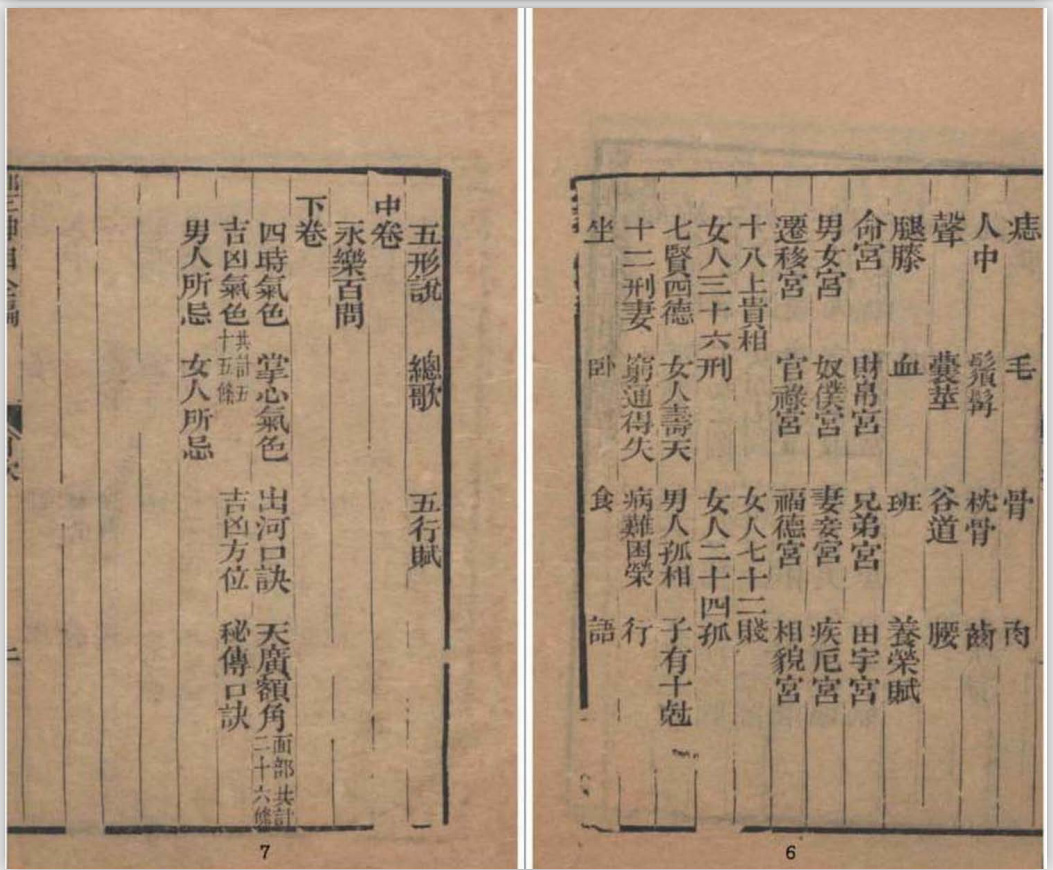 痣　毛　骨　肉
人中　鬚髯　枕骨　齒
聲　囊莖　谷道　腰
腿膝　血　班　養榮賦
命宮　財帛宮　兄弟宮　田宇宮
男女宮　奴僕宮　妻妾宮　疾厄宮
遷移宮　官祿宮　福德宮　相貌宮
十八上貴相　女人七十二賤
女人三十六刑　女人二十四孤
七賢四德　女人壽夭　男人孤相　子有十尅
十二刑妻　窮通得失　病難困榮　行
坐　卧　食　語
6
五形說　總歌　五行賦
中卷
永樂百問
下卷
四時氣色　掌心氣色　出河口訣　天廣額角　面部共計二十六條
吉凶氣色　共計五十五條　吉凶方位　秘傳口訣
男人所忌　女人所忌
目次　二
7